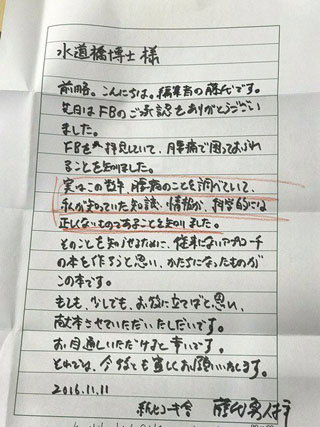 水道橋博士 様
前略。こんにちは。編集者の藤代です。
先日はFBのご承認をありがとうござい
ました。
FBを拝見していて、腰痛で困っておられ
ることを知りました。
実はこの数年、腰痛のことを調べていて、
私が知っていた知識、情報が、科学的には
正しくないものであることを知りました。
そのことを知らせるために、従来にないアプローチ
の本を作ろうと思い、かたちになったものが
この本です。
もしも、少しでも、お役に立てばと思い、
献本させていただいたしだいです。
お目通しいただけると幸いです。
それでは、今後とも宜しくお願いいたします。
2016.11.11
藤代勇人